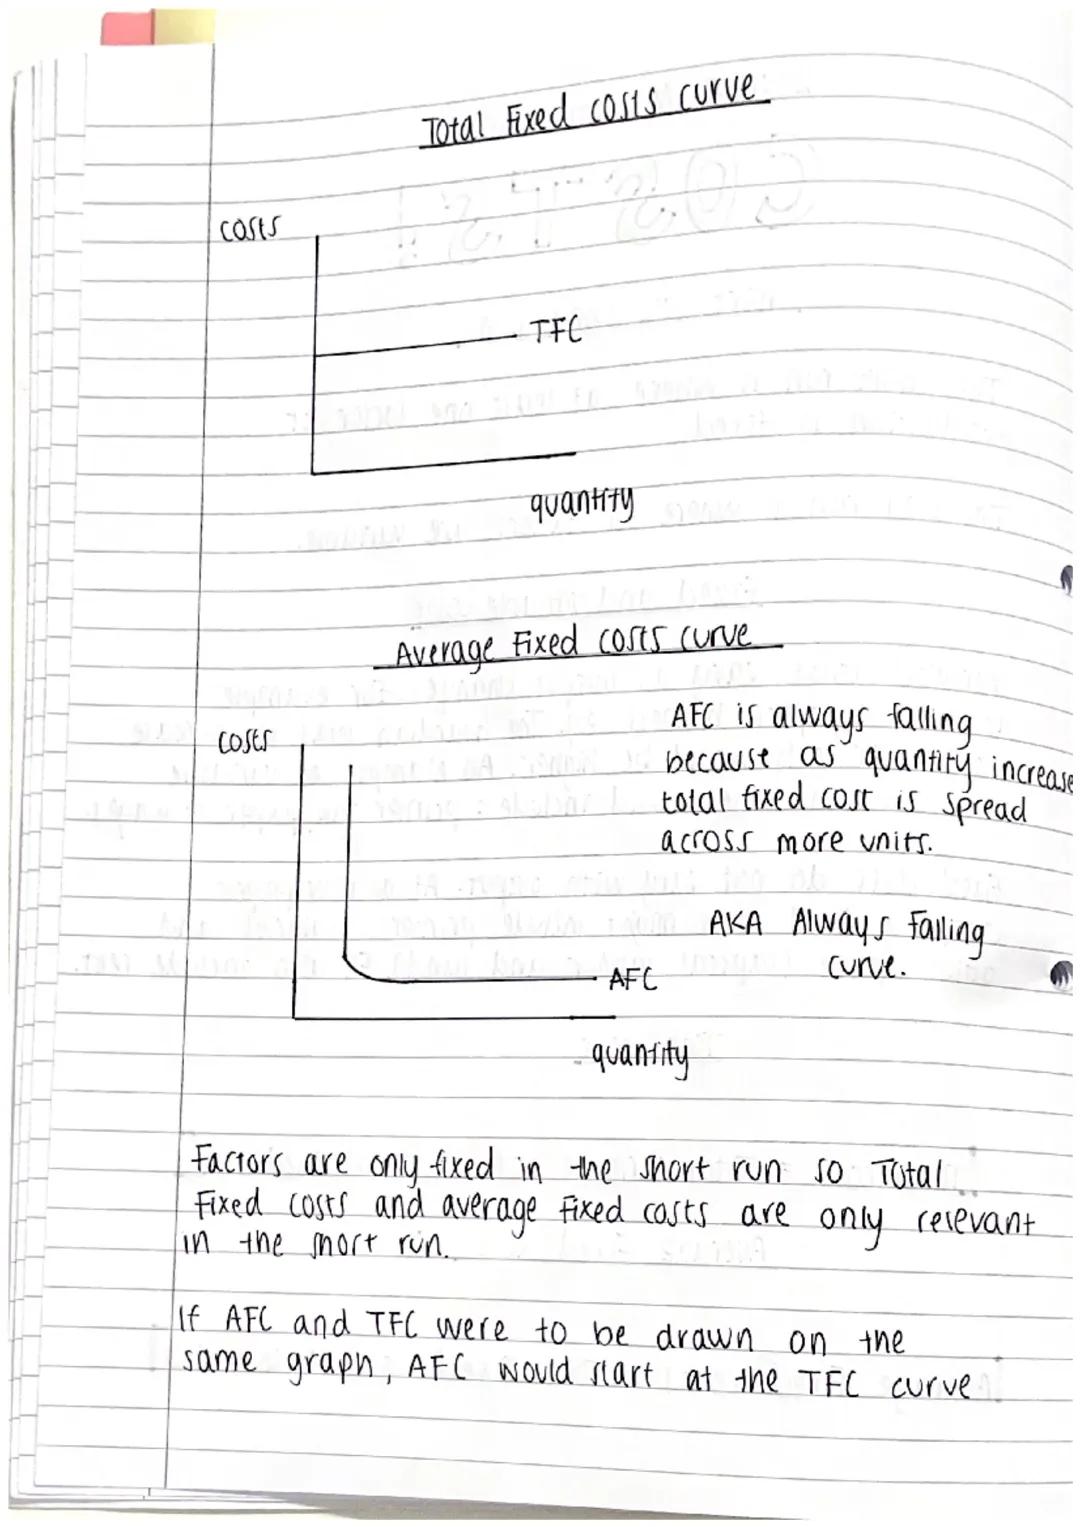 Total Fixed costs curve
costs
TFC
quantity
Average Fixed costs curve
costs
AFC is always falling
because as quantity increase
total fixed cost is spread
across more units.
AKA Always Falling
curve.
AFC
quantity
Factors are only fixed in the short run so Total
Fixed costs and average fixed costs are only relevant
in the short run.
If AFC and TFC were to be drawn on the
same graph, AFC would start at the TFC curve